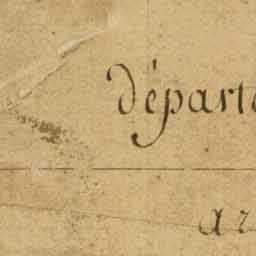 départe
ar